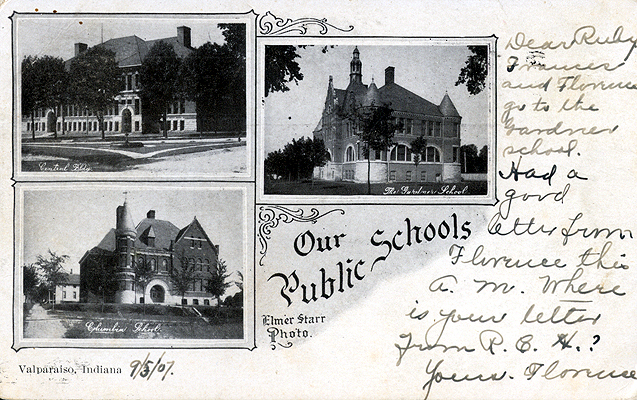 Central Bldg.
The Gardner School
Columbia School.
Our
Public Schools
Elmer Starr
Photo.
Valparaiso, Indiana 9/5/07.
Dear Ruby
Frances
and Florence
go to the
Gardner
school.
Had a
good
letter from
Florence this
a. m. Where
is your letter
from R. B. H.?
Yours. Florence